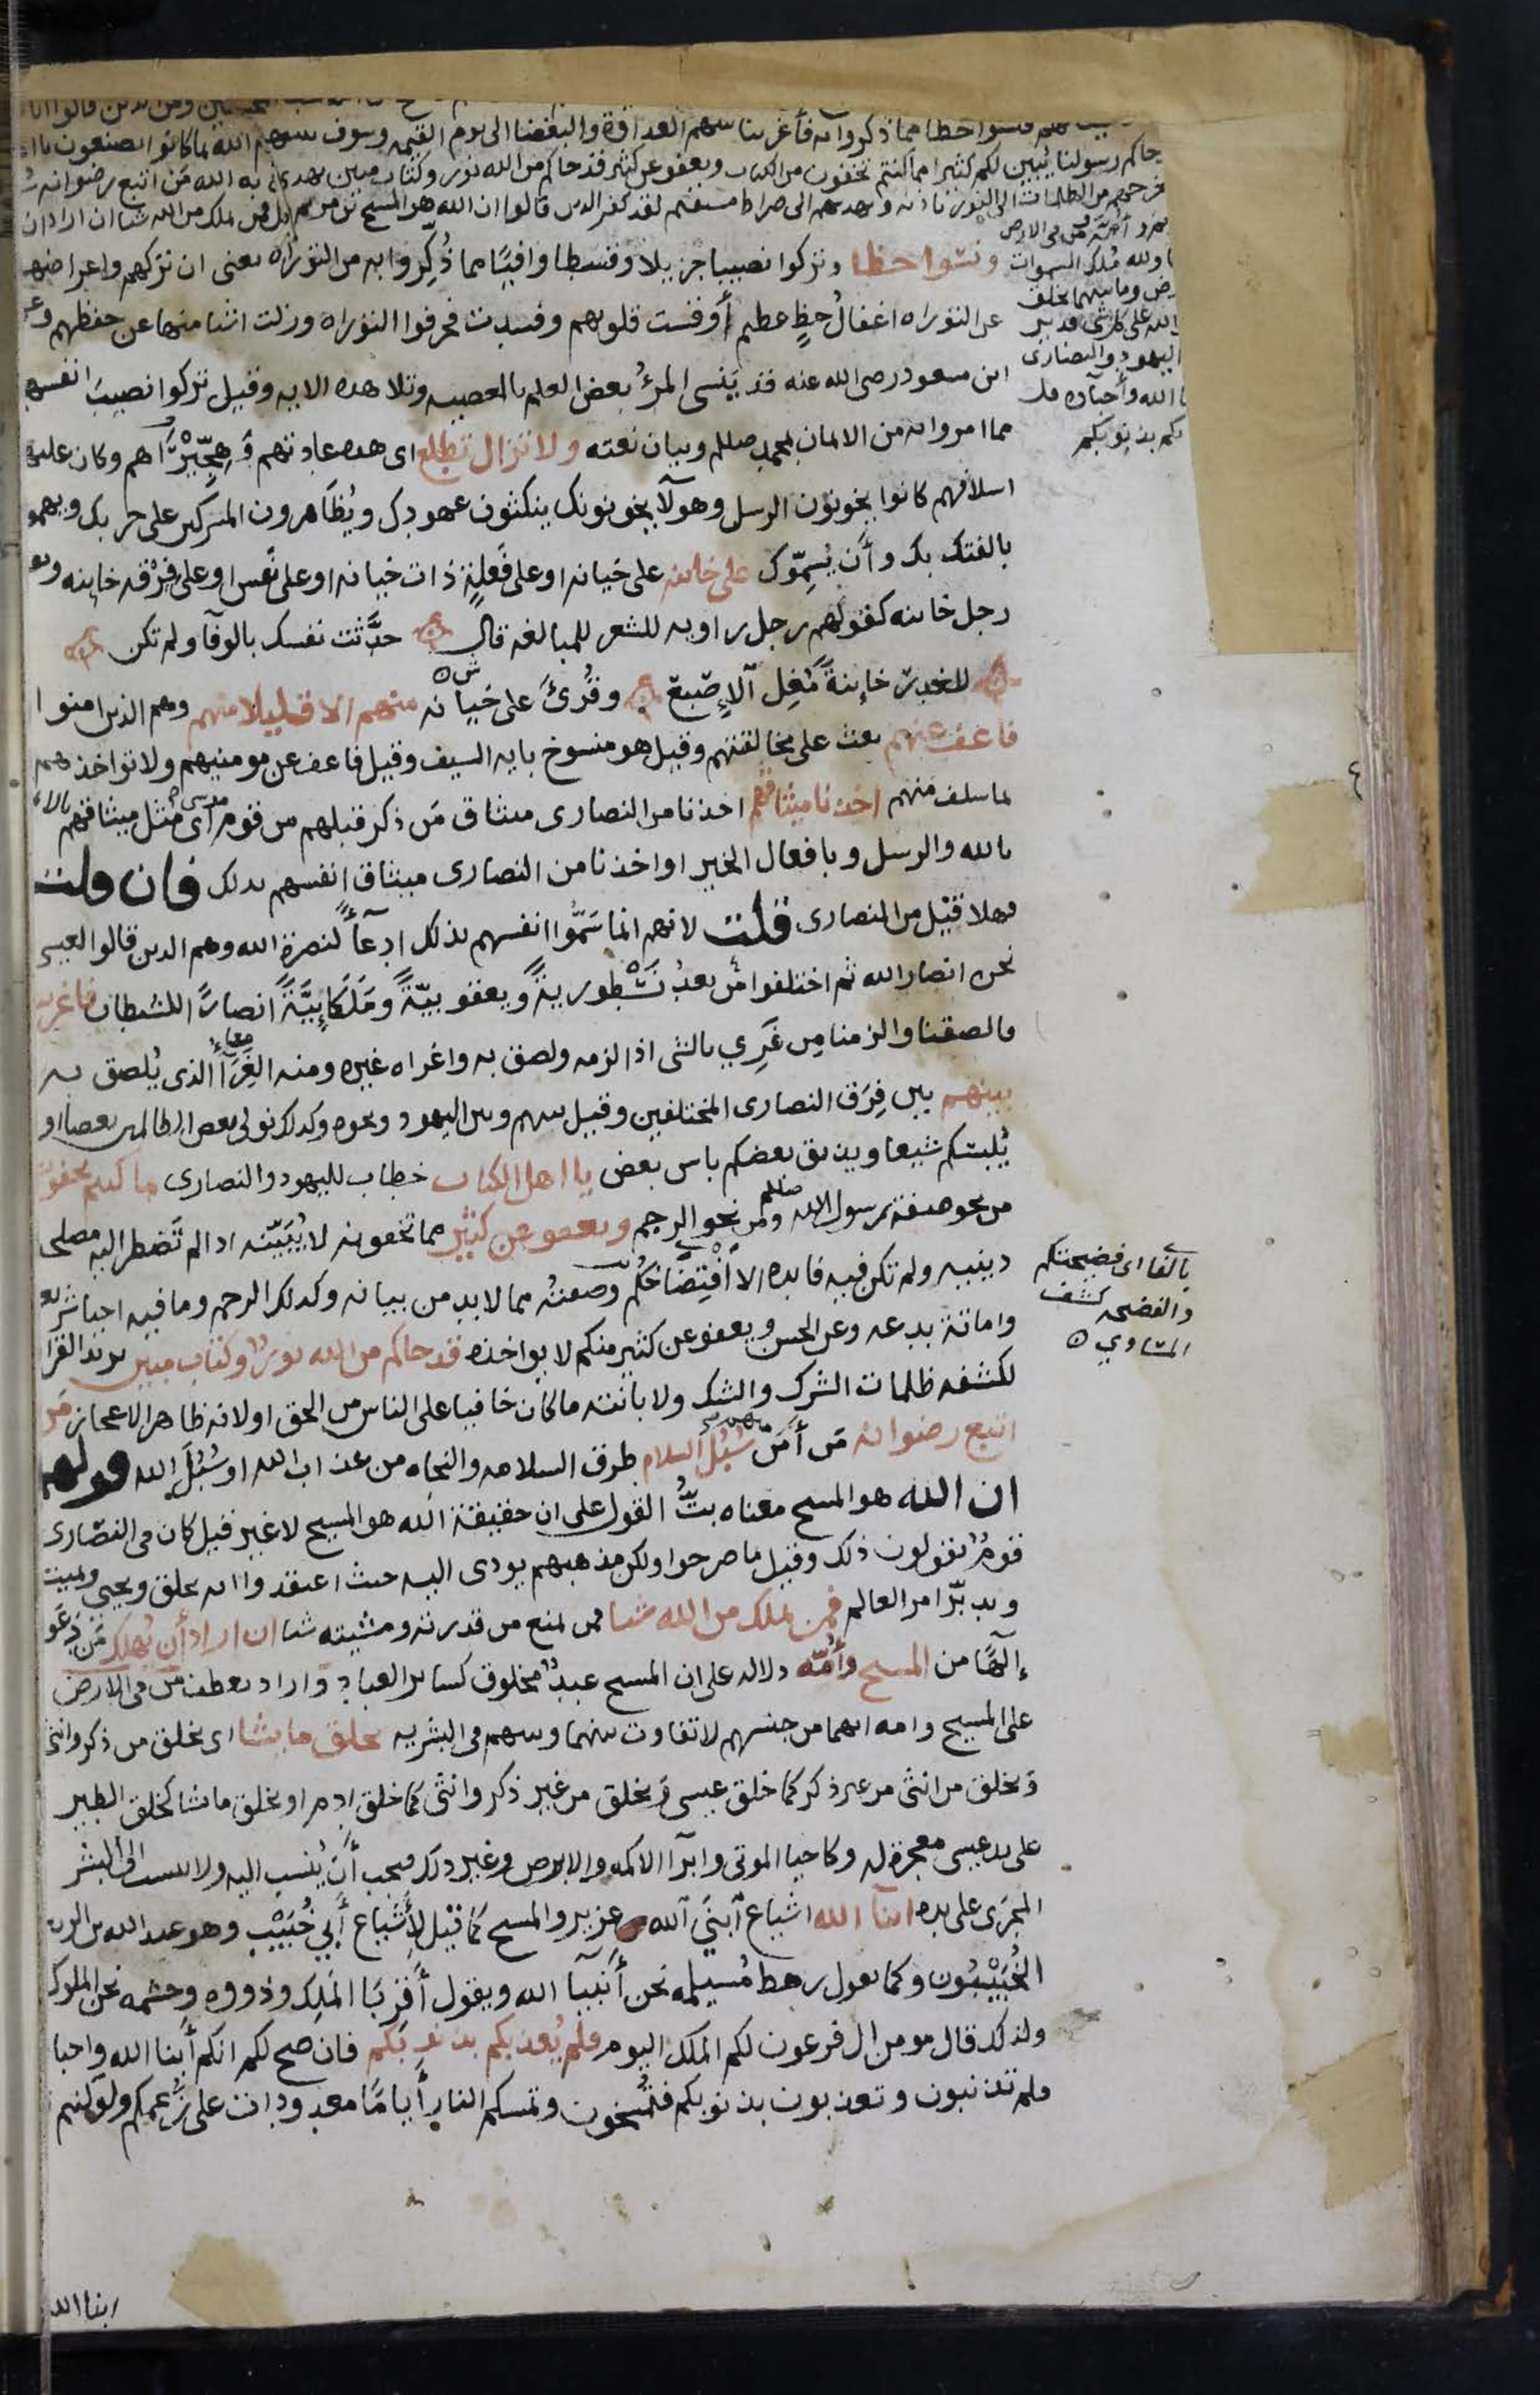 فنسوا حظا مما ذكروا به فأغرينا بينهم العداوة والبغضا الى يوم القيمه وسوف ينبيهم الله بما كانوا يصنعون يا اهل
جاكم رسولنا يبين لكم كثيرا مما كنتم تخفون من الكتاب ويعفو عن كثير قد جاكم من الله نور وكتاب مبين يهدي به الله من اتبع رضوانه
يخرجهم من الظلمات الى النور باذنه ويهديهم الى صراط مستقيم لقد كفر الذين قالوا ان الله هو المسيح بن مريم قل فمن يملك من الله شيا ان اراد ان
وأمه ومن في الارض
ولله ملك السموات
رض وما بينهما يخلق
الله على كل شي قدير
اليهود والنصارى
الله وأحباوه قل
بكم بذنوبكم
ونسوا حظا وتركوا نصيبا جزيلا وقسطا وافيا مما ذُكّروا به من التوراه يعنى ان تركهم واعراضهم
عن التوراه اغفالُ حظٍّ عظيم أو قست قلوبهم وفسدت فحرفوا التوراه وزلت اشيا منها عن حفظهم وعن
ابن مسعود رضى الله عنه قد يَنسى المرءُ بعض العلم بالمعصيه وتلا هده الايه وقيل تركوا نصيبَ انفسهم
مما امروا به من الايمان بمحمد صلعم وبيان نعته ولا تزال تطلع اى هده عادتهم وهِجِّيرَاهم وكان عليه
اسلافهم كانوا يخونون الرسل وهولآ يخونونك ينكثون عهودك ويُظاهرون المشركين على حربك ويهمون
بالفتك بك وأن يُسمّوك على خاينه على خيانه او على فَعلةٍ ذات خيانه او على نفس او على فِرْقه خاينه ويقال
رجل خاينه كقولهم رجل راويه للشعر للمبالغه قال حدَّثت نفسك بالوفآ ولم تكن
للغدر خاينةً مُغِل الإِصْبَع وقُرئَ على خيانه منهم الا قليلا منهم وهم الذين امنوا
فاعف عنهم بعث على مخالقتهم وقيل هو منسوخ بايه السيف وقيل فاعف عن مومنيهم ولا تواخذهم
لما سلف منهم اخذنا ميثاقهم اخذنا من النصارى ميثاق مَن ذكر قبلهم من قوم موسى اى مثل ميثاقهم بالايمان
بالله والرسل وبافعال الخير او اخذنا من النصارى ميثاق انفسهم بدلك فان قلت
فهلا قيل من النصارى قلت لانهم انما سَمَّوا انفسهم بذلك ادعآً لنصرة الله وهم الدين قالوا لعيسى
نحن انصار الله ثم اختلفوا من بعدُ نَسْطوريةً ويعقوبيّةً ومَلْكَائِيَّةً انصارًا للشيطان فاغرينا
فالصقنا والزمنا من غَرِيَ بالشى اذا لزمه ولصق به واغراه غيره ومنه الغِرَآ الذى يُلصق به
بينهم بين فِرَق النصارى المختلفين وقيل بينهم وبين اليهود ونحوه وكدلك نولى بعض الظالمين بعضا او
يُلبسكم شيعا ويذيق بعضكم باس بعض يا اهل الكتاب خطاب لليهود والنصارى مما كنتم تخفون
من نحو صفة رسول الله صلعم ومن نحو الرجم ويعفو عن كثير مما تخفونه لا يُبَيّنه ادا لم تَضطر اليه مصلحه
دينيه ولم تكن فيه فايده الا افْتِضَاحُكم وصفتُه مما لا بد من بيانه وكدلك الرجم وما فيه احيا شريعه
بالفا اى فضيحتكم
والفضيحه كشف
المساوي
واماتة بدعه وعن الحسن ويعفو عن كثير منكم لا يواخذه قد جاكم من الله نورٌ وكتاب مبين يريد القران
لكشفه ظلمات الشرك والشك ولابانته ما كان خافيا على الناس من الحق او لانه ظاهر الاعجاز مَن
اتبع رضوانه مَن أمَنَ سُبُلَ السلام طرق السلامه والنجاه من عذاب الله او سُبُلَ الله قولهم
ان الله هو المسيح معناه بتُّ القول على ان حقيقة الله هو المسيح لا غير قيل كان فى النصارى
قومٌ يقولون ذلك وقيل ما صرحوا ولكن مذهبهم يودى اليه حيث اعتقدوا انه يخلق ويحيى ويميت
ويدبّر امر العالم فمن يملك من الله شيا فمن يمنع من قدرته ومشيته شيا ان اراد أن يُهلك مَن دَعَو
إلَهًا من المسيح وأُمّه دلاله على ان المسيح عبدٌ مخلوق كساير العباد واراد بعطف من فى الارض
على المسيح وامه انهما من جنسهم لا تفاوت بينهما وبينهم فى البشريه يخلق ما يشا اى يخلق من ذكر وانثى
ويخلق من انثى من غير ذكر كما خلق عيسى ويخلق من غير ذكر وانثى كما خلق ادم او يخلق ما يشا كخلق الطير
على يد عيسى معجزة له وكاحيا الموتى وابرآ الاكمه والابرص وغير دلك فيجب أن يُنسب اليه ولا ينسب الى البشر
المجرَى على يده ابنآ الله اشياع ابنَي الله عزير والمسيح كما قيل لأَشياع أَبي خُبَيْب وهو عبد الله بن الزبير
الخُبَيْبُون وكما يقول رهط مُسيلمه نحن أنبيآ الله ويقول أقرِبَا المَلِك وذووه وحشمه نحن الملوك
ولذلك قال مومن ال فرعون لكم الملك اليوم فلم يُعذبكم بذنوبكم فان صح لكم انكم أبنا الله واحبا
فلم تذنبون وتعذبون بذنوبكم فتُمْسَخون وتمسكم النار أيامًا معدودات على زعمكم ولو كنتم
ابنا الله